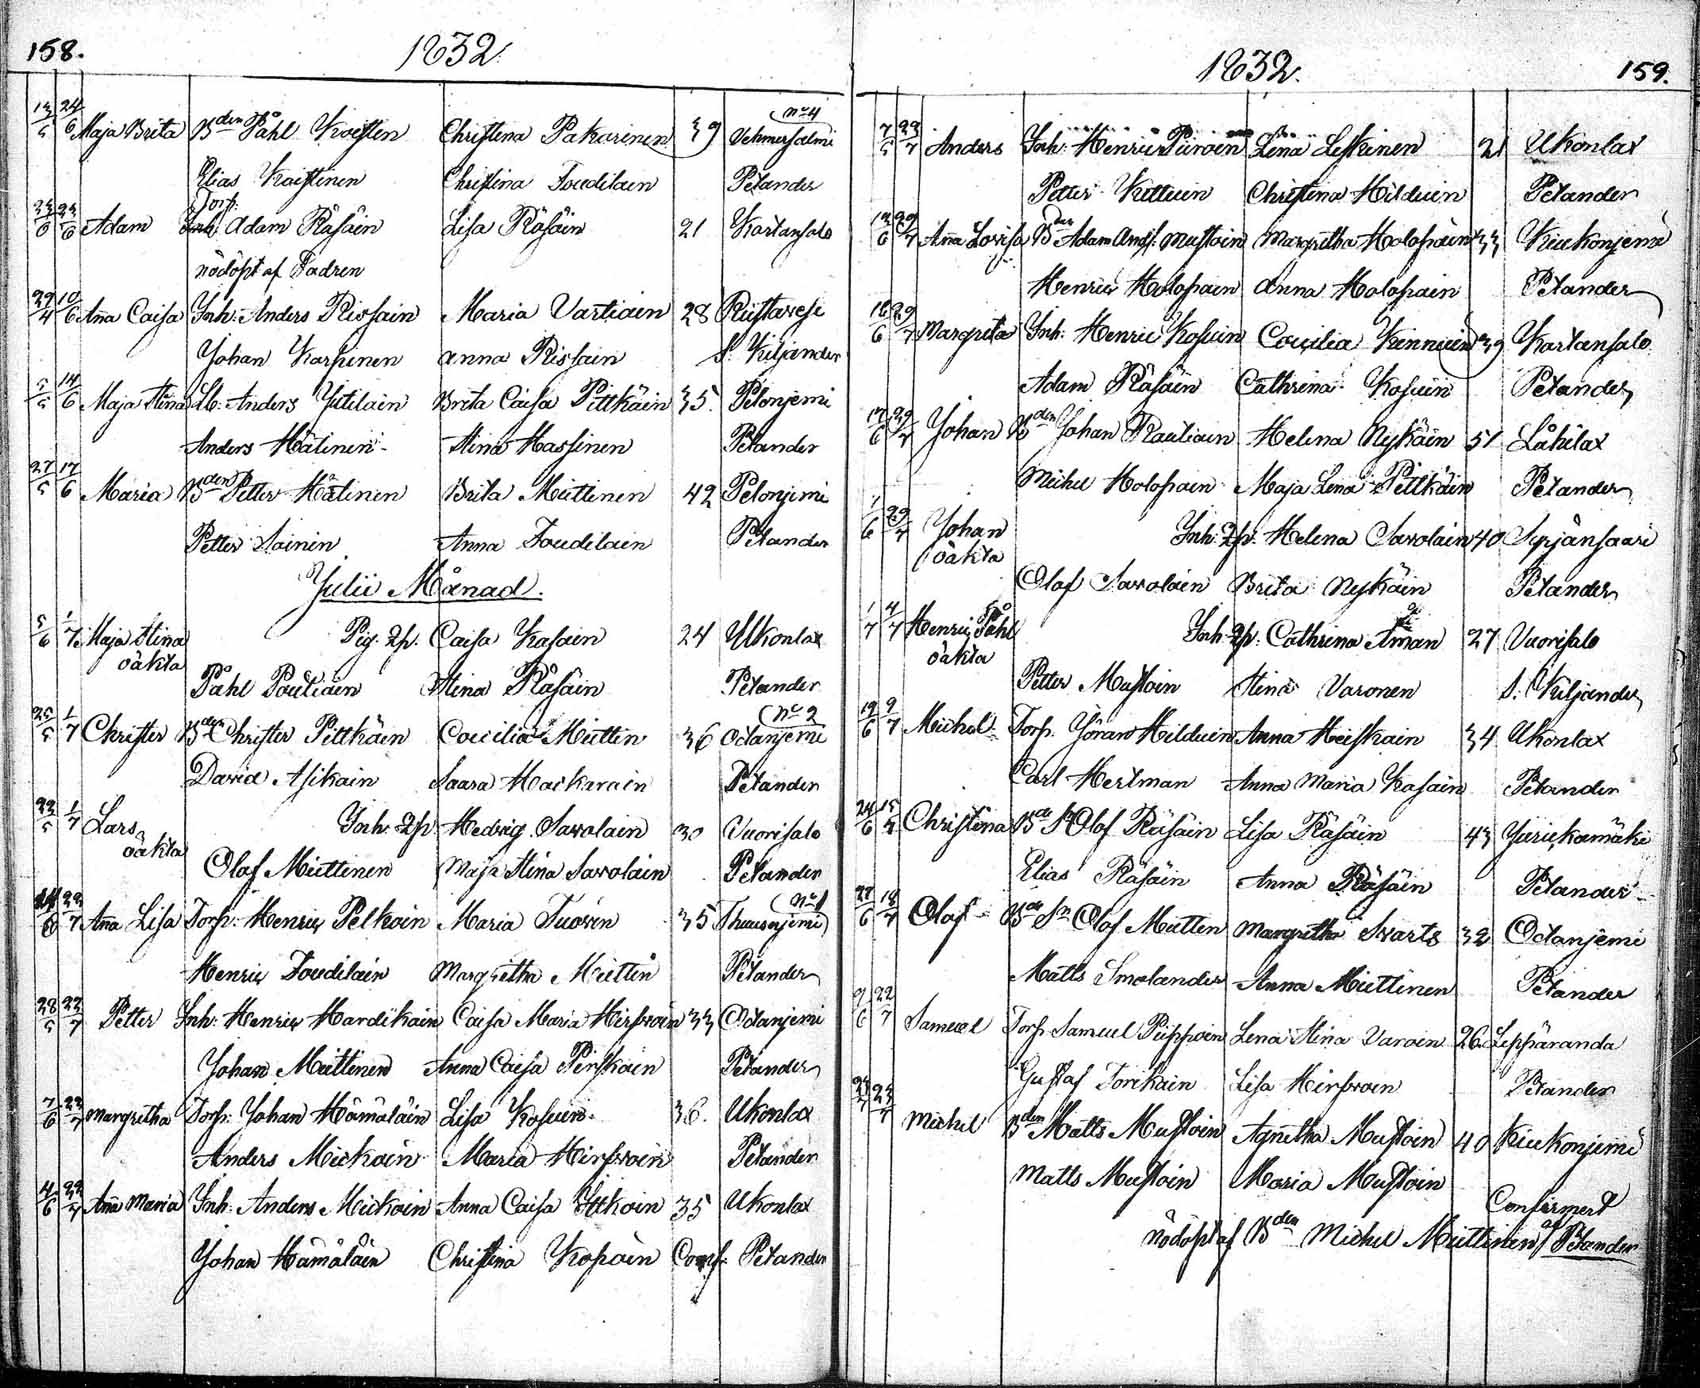 158.
1832.
13/5 24/6 Maja Brita Bden Påhl Koisten Christina Pakarinen 39 No 4 Vehmersalmi
Elias Koistinen Christina Toudilain Petander
24/6 Adam Torp: Adam Räsäin Lisa Räsäin 21 Kartansalo
nödöpt af Fadren
29/4 10/6 Ana Caisa Inh: Anders Rissain Maria Vartiain 28 Riistavesi
Johan Karpinen Anna Rissain S. Kiljander
5/5 14/6 Maja Stina Lb: Anders Jutilain Brita Caisa Pittkäin 35. Pelonjemi
Anders Hälinen Stina Hassinen Petander
27/5 17/6 Maria Bden Petter Hälinen Brita Miettinen 42 Pelonjemi
Petter Sainin Anna Toudilain Petander
Julii Månad.
5/6 1/7 Maja Stina Pig: 2p. Caisa Kasain 24 Ukonlax
oäkta
Påhl Poutiain Stina Räsäin Petander
25/5 1/7 Christer Bden Christer Pittkäin Coecilia Miettin 36 No 2 Octanjemi
David Asikain Saara Mackarain Petander
22/5 1/7 Lars Inh: 2p Hedvig Savolain 30 Vuorisalo
oäkta
Olof Miettinen Maja Stina Savolain Petander
22/7 Ana Lisa Torp: Henric Pelkoin Maria Tuovin 35 No 1 Thuusnjemi
Henric Toudilain Margretha Miettin Petander
28/5 22/7 Petter Inh: Henric Hardikain Caisa Maria Hirsvoin 33 Octanjemi
Johan Miettinen Anna Caisa Pirskain Petander
7/6 22/7 Margretha Torp: Johan Hämäläin Lisa Kosuin 36. Ukonlax
Anders Mickain Maria Hirsvoin Petander
4/6 22/7 Ana Maria Inh: Anders Mickain Anna Caisa Ittkoin 35 Ukonlax
Johan Hämäläin Christina Kopain Conf: Petander
1832.
159.
7/5 Anders Inh: Henric Piiroin Lena Leskinen 21 Ukonlax
Petter Kettuin Christina Hilduin Petander
29/7 Ana Lovisa Bden Adam And: Mustoin Margretha Holopain 33 Kiukonjemi
Henric Holopain Anna Holopain Petander
16/6 29/7 Margreta Inh: Henric Kosuin Coecilia Kinnuin 39 Kartansalo
Adam Räsäin Cathrina Kosuin Petander
17/6 29/7 Johan Bden Johan Rautiain Helena Nykäin 51 Låhilax
Michel Holopain Maja Lena Pittkäin Petander
1/6 29/7 Johan Inh: 2p. Helena Savolain 40 Syrjänsaari
oäkta
Olof Savolain Brita Nykäin Petander
1/7 4/7 Henric Påhl Inh: 2p: Cathrina Åman 27 Vuorisalo
oäkta
Petter Mustoin Stina Varonen S: Kiljander
19/6 9/7 Michel Torp. Göran Hilduin Anna Heiskain 34 Ukonlax
Carl Hertman Anna Maria Kasain Petander
24/6 15/7 Christina Bde Sn Olof Räsäin Lisa Räsäin 43 Juriickamäki
Elias Räsäin Anna Räsäin Petander
27/6 18/7 Olof Bde Sn Olof Miettin Margretha Svarts 32 Octanjemi
Matts Smolander Anna Miettinen Petander
9/6 22/7 Samuel Torp Samuel Piippoin Lena Stina Varoin 26. Leppäranda
Gustaf Torikain Lisa Hirsvoin Petander
Michel Bden Matts Mustoin Agnetha Mustoin 40 Kiukonjemi
Matts Mustoin Maria Mustoin
Confirmert
nödöpt af Bden Michel Miettinen af Petander